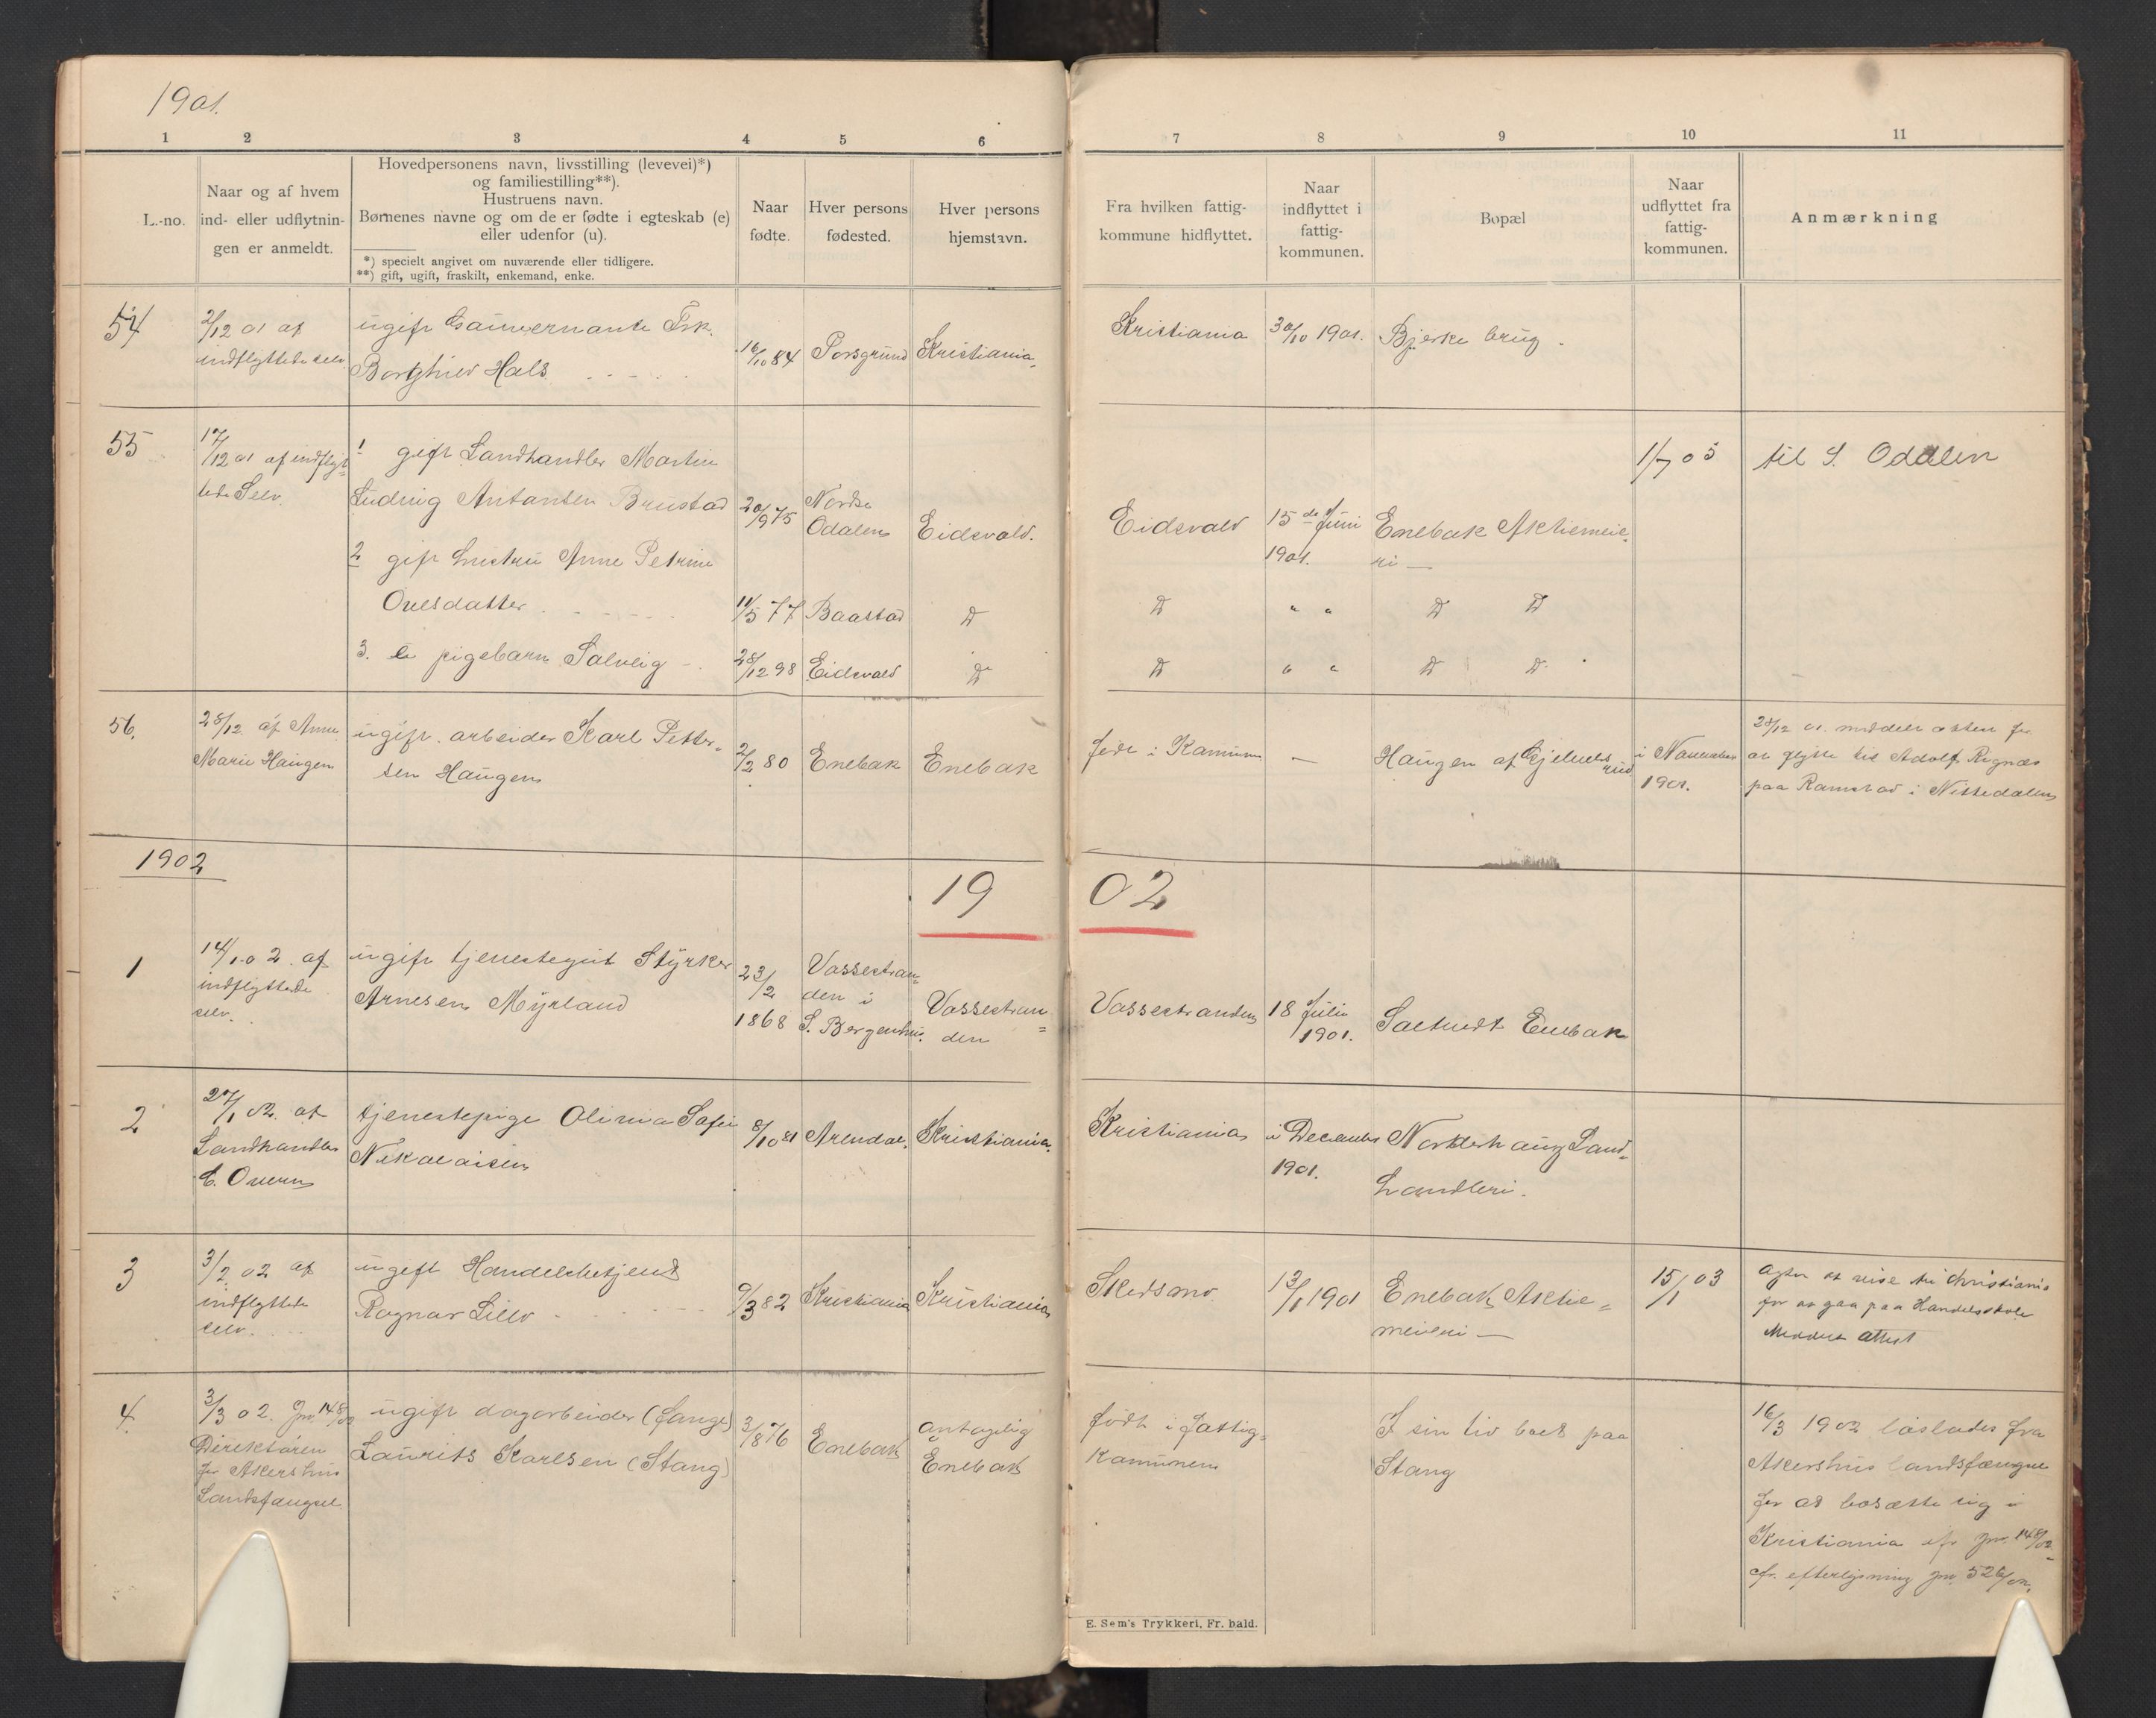 1901.
1 2 3 4 5 6
L.-no.
Naar og af hvem
ind- eller udflytnin-
gen er anmeldt.
Hovedpersonens navn, livsstilling (levevei)*)
og familiestilling**).
Hustruens navn.
Børnenes navne og om de er fødte i egteskab (e)
eller udenfor (u).
*) specielt angivet om nuværende eller tidligere.
**) gift, ugift, fraskilt, enkemand, enke.
Naar
fødte.
Hver persons
fødested.
Hver persons
hjemstavn.
7 8 9 10 11
Fra hvilken fattig-
kommune hidflyttet.
Naar
indflyttet i
fattig-
kommunen.
Bopæl
Naar
udflyttet fra
fattig-
kommunen.
Anmærkning
54
2/12 01 af
indflyttede selv.
ugift Gauvernante Frk.
Borghild Hals
16/10 84
Porsgrund
Kristiania
Kristiania
30/10 1901.
Bjerke brug.
55
17/12 01 af indflyt-
tede Selv.
1 gift Landhandler Martin
Ludvig Antonsen Brustad
20/9 75
Nordre
Odalen
Eidsvold.
Eidsvold
15de Juni
1901.
Enebak Aktiemeie-
ri —
1/7 03
til S. Odalen
2 gift hustru Anne Petrine
Ovesdatter
11/5 77
Baastad
D
D
" "
D D
3. e pigebarn Solveig
28/12 98
Eidsvold
D
D
" "
D D
56.
28/12 af Anne
Marie Haugen
ugift arbeider Karl Petter-
sen Haugen
2/2 80
Enebak
Enebak
født i Kommunen
—
Haugen af Gjelsetsrud
i November
1901.
28/12 01 meddelt attest for
at flytte til Adolf Rignæs
paa Ramstad i Nittedalen
1902
19 02
1
14/1 02. af
indflyttede
selv.
ugift tjenestegut Styrker
Arnesen Myrland
23/2
1868
Vossestran-
den i
S. Bergenhus.
Vossestran-
den
Vossestranden
18 Juli
1901.
Enebak
2
27/1 02. af
Landhandler
E. Overn
tjenestepige Olivia Sofie
Nikolaisen
8/10 81
Arendal.
Kristiania.
Kristiania
i December
1901.
Norderhaug Land-
handleri.
3
3/2 02 af
indflyttede
selv.
ugift Handelsbetjent
Ragnar Lillo
9/3 82
Kristiania
Kristiania
Skedsmo
13/1 1901
Enebak Aktie-
meieri —
15/1 03
Agter at reise til Christiania
for at gaa paa Handelsskole
Meddelt attest
4.
3/3 02. Jnr. 148/02
Direktøren
for Akershus
Landsfængsel
ugift dagarbeider (fange)
Laurits Karlsen (Stang)
3/8 76
Enebak
antagelig
Enebak
født i fattig-
kommunen
I sin tid boet paa
Stang
16/3 1902 løslades fra
Akershus landsfængsel
for at bosætte sig i
Kristiania cfr. Jnr. 148/02
cfr. efterlysning jnr. 526/02.
E. Sem's Trykkeri, Fr. hald.